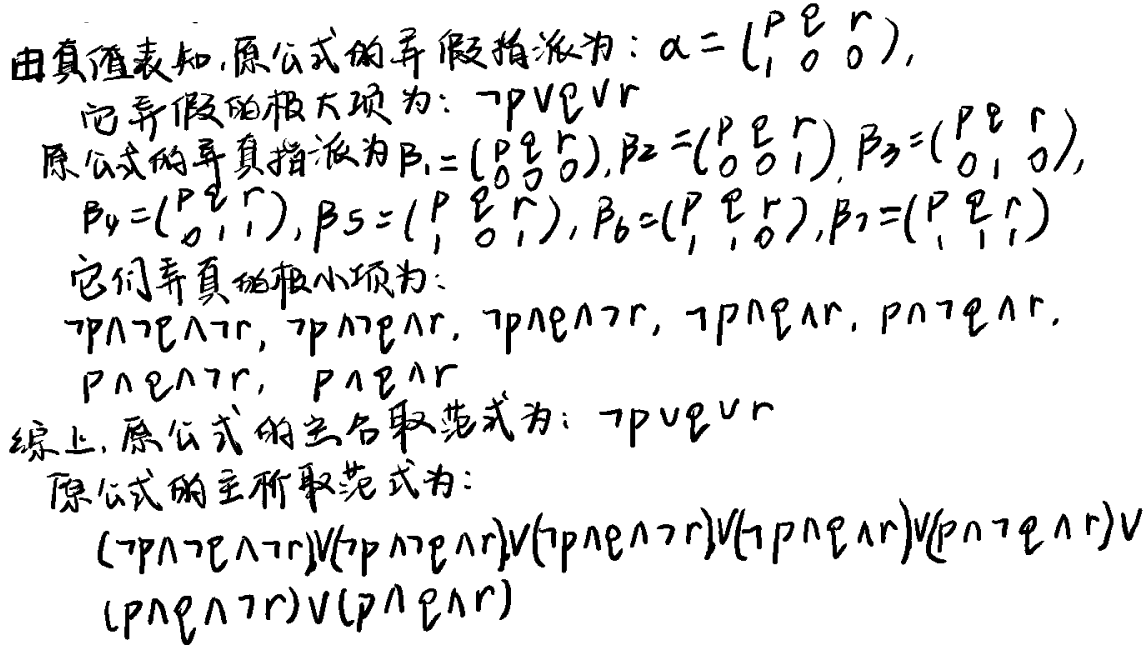 由真值表知,原公式的弄假指派为: α = (p q r / 1 0 0),
它弄假的极大项为: ¬p∨q∨r
原公式的弄真指派为 β₁ = (p q r / 0 0 0), β2 = (p q r / 0 0 1), β₃ = (p q r / 0 1 0),
β₄ = (p q r / 0 1 1), β5 = (p q r / 1 0 1), β₆ = (p q r / 1 1 0), β₇ = (p q r / 1 1 1)
它们弄真的极小项为:
¬p∧¬q∧¬r, ¬p∧¬q∧r, ¬p∧q∧¬r, ¬p∧q∧r, p∧¬q∧r,
p∧q∧¬r, p∧q∧r
综上,原公式的主合取范式为: ¬p∨q∨r
原公式的主析取范式为:
(¬p∧¬q∧¬r)∨(¬p∧¬q∧r)∨(¬p∧q∧¬r)∨(¬p∧q∧r)∨(p∧¬q∧r)∨
(p∧q∧¬r)∨(p∧q∧r)